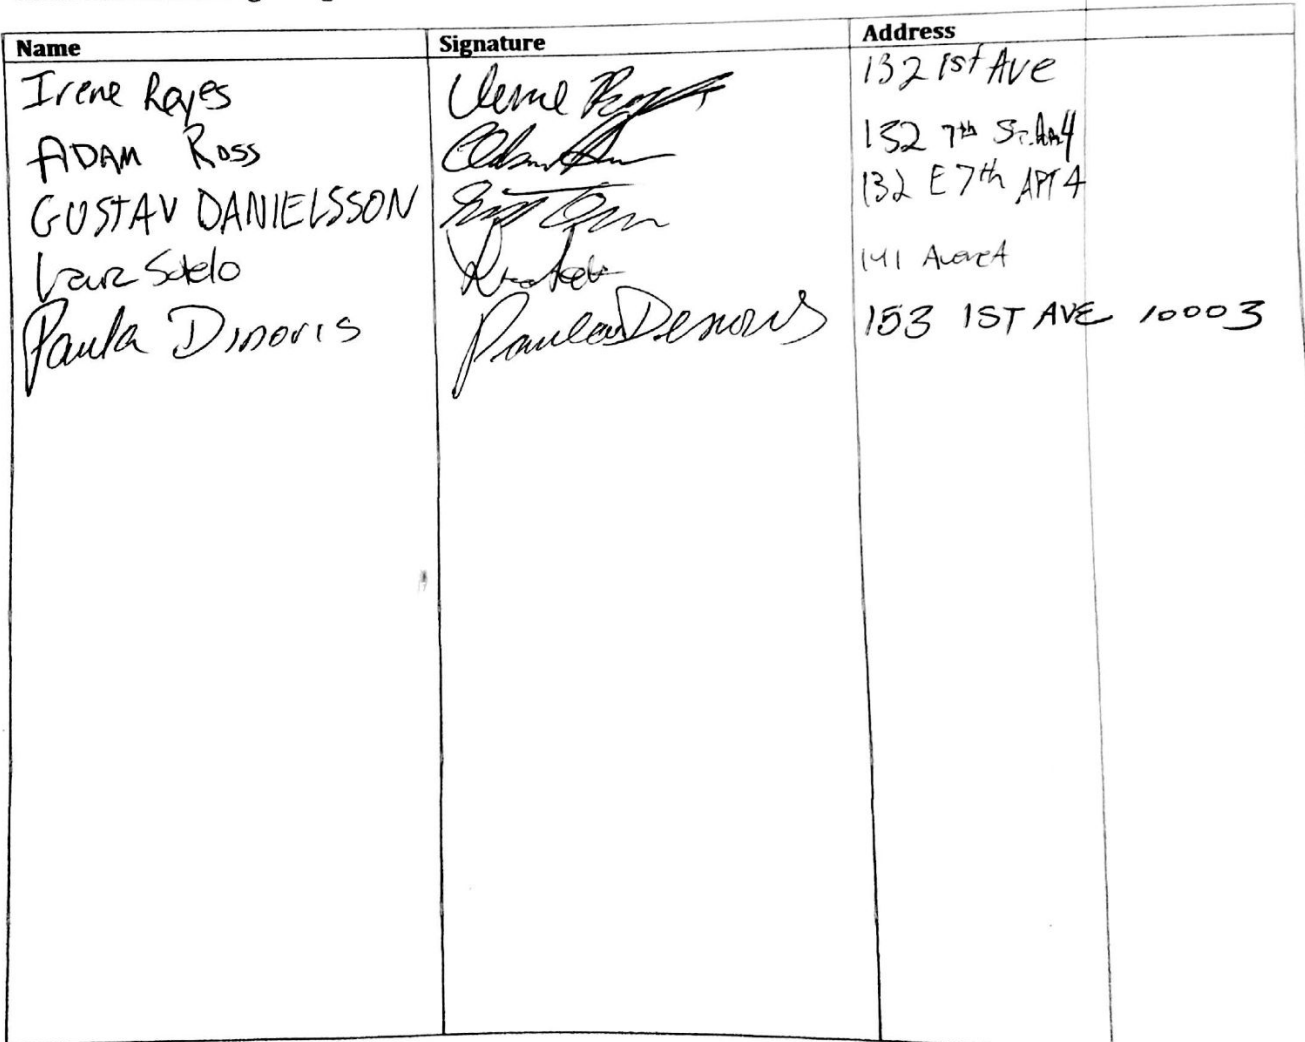 Name Signature Address
Irene Reyes Irene 132 1st Ave
ADAM Ross 132 7th St. Apt 4
GUSTAV DANIELSSON 132 E 7th APT 4
Sotelo 141
Paula Dinoris Paula Denoris 153 1ST AVE 10003